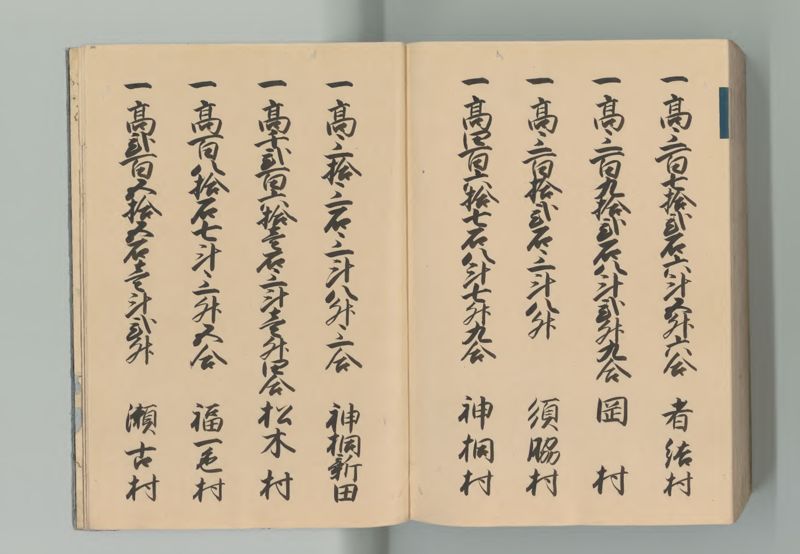 一高三百七拾弐石六斗五升六合 者結村
一高三百九拾弐石八斗弐升九合 岡村
一高三百拾弐石三斗八升 須脇村
一高四百六拾七石八斗七升九合 神桐村
一高三拾三石三斗八升三合 神桐新田
一高千弐百六拾壱石三斗壱升四合 松木村
一高百八拾石七斗三升五合 福一色村
一高弐百五拾五石壱斗弐升 瀬古村